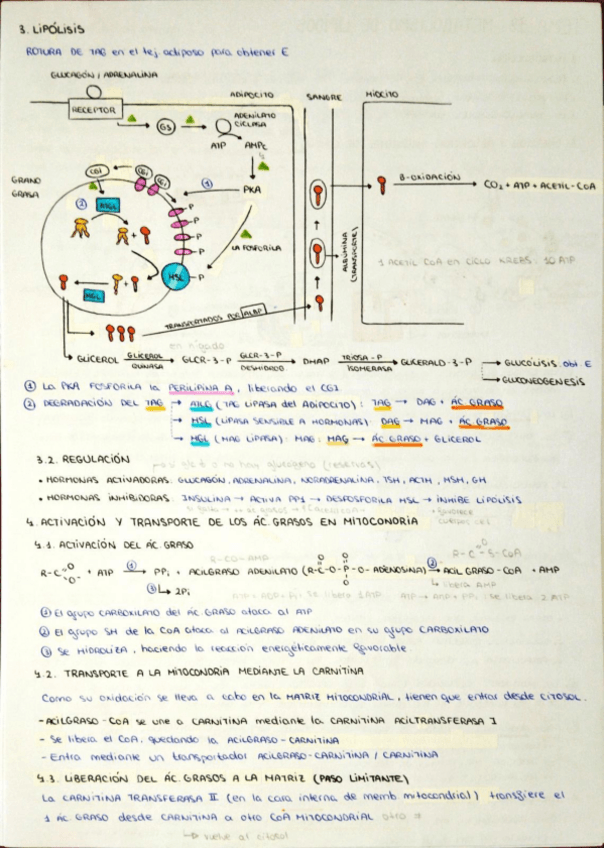 3. LIPÓLISIS
ROTURA DE TAG en el tej. adiposo para obtener E
GLUCAGÓN / ADRENALINA
ADIPOCITO
SANGRE
MIOCITO
RECEPTOR
GS
ADENILATO
CICLASA
ATP → AMPc
GRANO
GRASA
CGI
CGI
CGI
① PKA
② ATGL
P
P
P
P
LA FOSFORILA
HSL - P
MGL
ALBÚMINA
(TRANSPORTE)
B-OXIDACIÓN
CO₂ + ATP + ACETIL-COA
1 ACETIL COA EN CICLO KREBS: 10 ATP
TRANSPORTADOS POR ALBP
en hígado
GLICEROL → GLICEROL QUINASA → GLCR-3-P → GLCR-3-P DESHIDROG → DHAP → TRIOSA-P ISOMERASA → GLICERALD-3-P → GLUCÓLISIS. obt. E
→ GLUCONEOGENESIS
① La PKA FOSFORILA la PERILIPINA A, liberando el CGI
② DEGRADACIÓN DEL TAG → ATGL (TAG LIPASA del ADIPOCITO): TAG → DAG + ÁC. GRASO
→ HSL (LIPASA SENSIBLE A HORMONAS): DAG → MAG + ÁC GRASO
→ MGL (MAG LIPASA): MAG: MAG → ÁC GRASO + GLICEROL
3.2. REGULACIÓN
• HORMONAS ACTIVADORAS: GLUCAGÓN, ADRENALINA, NORADRENALINA, TSH, ACTH, MSH, GH
• HORMONAS INHIBIDORAS: INSULINA → ACTIVA PP1 → DESFOSFORILA HSL → INHIBE LIPÓLISIS
4. ACTIVACIÓN Y TRANSPORTE DE LOS ÁC. GRASOS EN MITOCONDRIA
4.1. ACTIVACIÓN DEL ÁC. GRASO
R-CO-AMP
R-C-S-COA
O
R-C O O⁻ + ATP ① → PPi + ACILGRASO ADENILATO (R-C-O-P-O-ADENOSINA) ② → ACIL GRASO-COA + AMP
③ → 2Pi
libera AMP
ATP → ADP + Pi: se libera 1 ATP ATP → AMP + PPi: se libera 2 ATP
① El grupo CARBOXILATO del ÁC. GRASO ataca al ATP
② El grupo SH de la COA ataca al ACILGRASO ADENILATO en su grupo CARBOXILATO
③ SE HIDROLIZA, haciendo la reacción energéticamente favorable
4.2. TRANSPORTE A LA MITOCONDRIA MEDIANTE LA CARNITINA
Como su oxidación se lleva a cabo en la MATRIZ MITOCONDRIAL, tienen que entrar desde CITOSOL.
- ACILGRASO-COA se une a CARNITINA mediante la CARNITINA ACILTRANSFERASA I
- Se libera el COA, quedando la ACILGRASO-CARNITINA
- Entra mediante un transportador ACILGRASO-CARNITINA / CARNITINA
4.3. LIBERACIÓN DEL ÁC. GRASOS A LA MATRIZ (PASO LIMITANTE)
La CARNITINA TRANSFERASA II (en la cara interna de memb. mitocondrial) transfiere el
1 ÁC. GRASO desde CARNITINA a otro COA MITOCONDRIAL
↳ vuelve al citosol